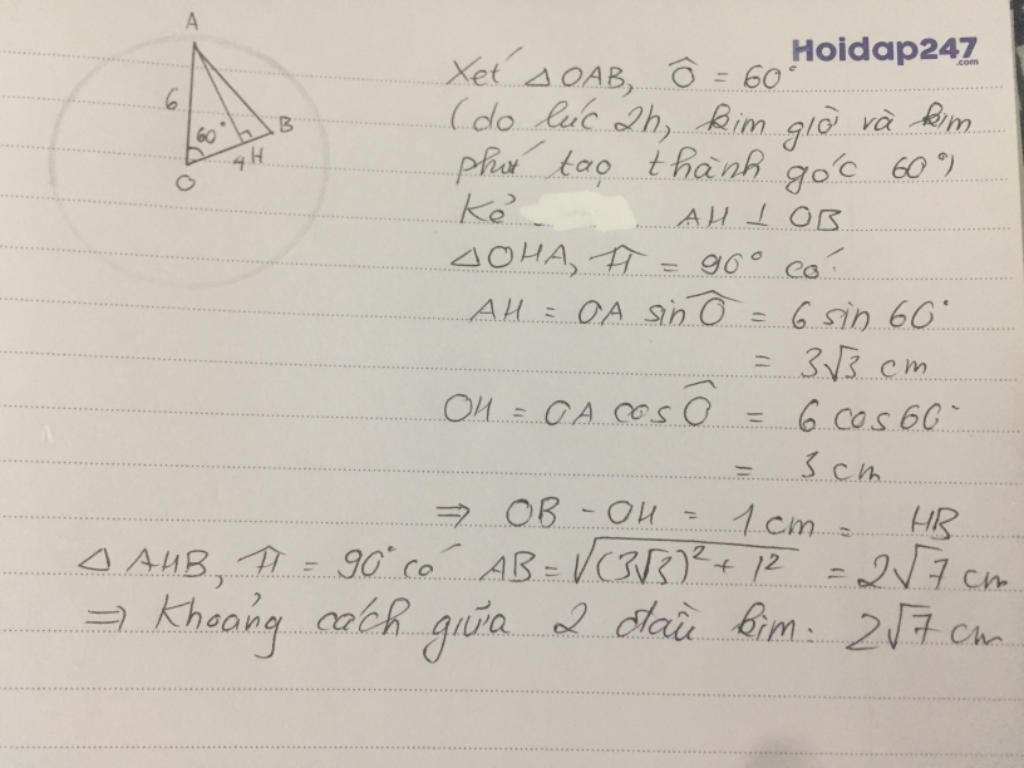 A
6
60°
B
4 H
O
Hoidap247
.com
Xét △OAB, Ô = 60°
(do lúc 2h, kim giờ và kim
phút tạo thành góc 60°)
Kẻ AH ⊥ OB
△OHA, Ĥ = 90° có:
AH = OA sin Ô = 6 sin 60°
= 3√3 cm
OH = OA cos Ô = 6 cos 60°
= 3 cm
⇒ OB - OH = 1 cm = HB
△ AHB, Ĥ = 90° có AB = √((3√3)² + 1²) = 2√7 cm
⇒ Khoảng cách giữa 2 đầu kim: 2√7 cm